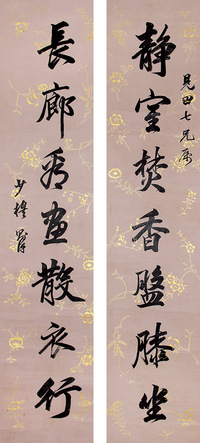 見田七兄屬
静室焚香盤膝坐
長廊看畫散衣行
少穆